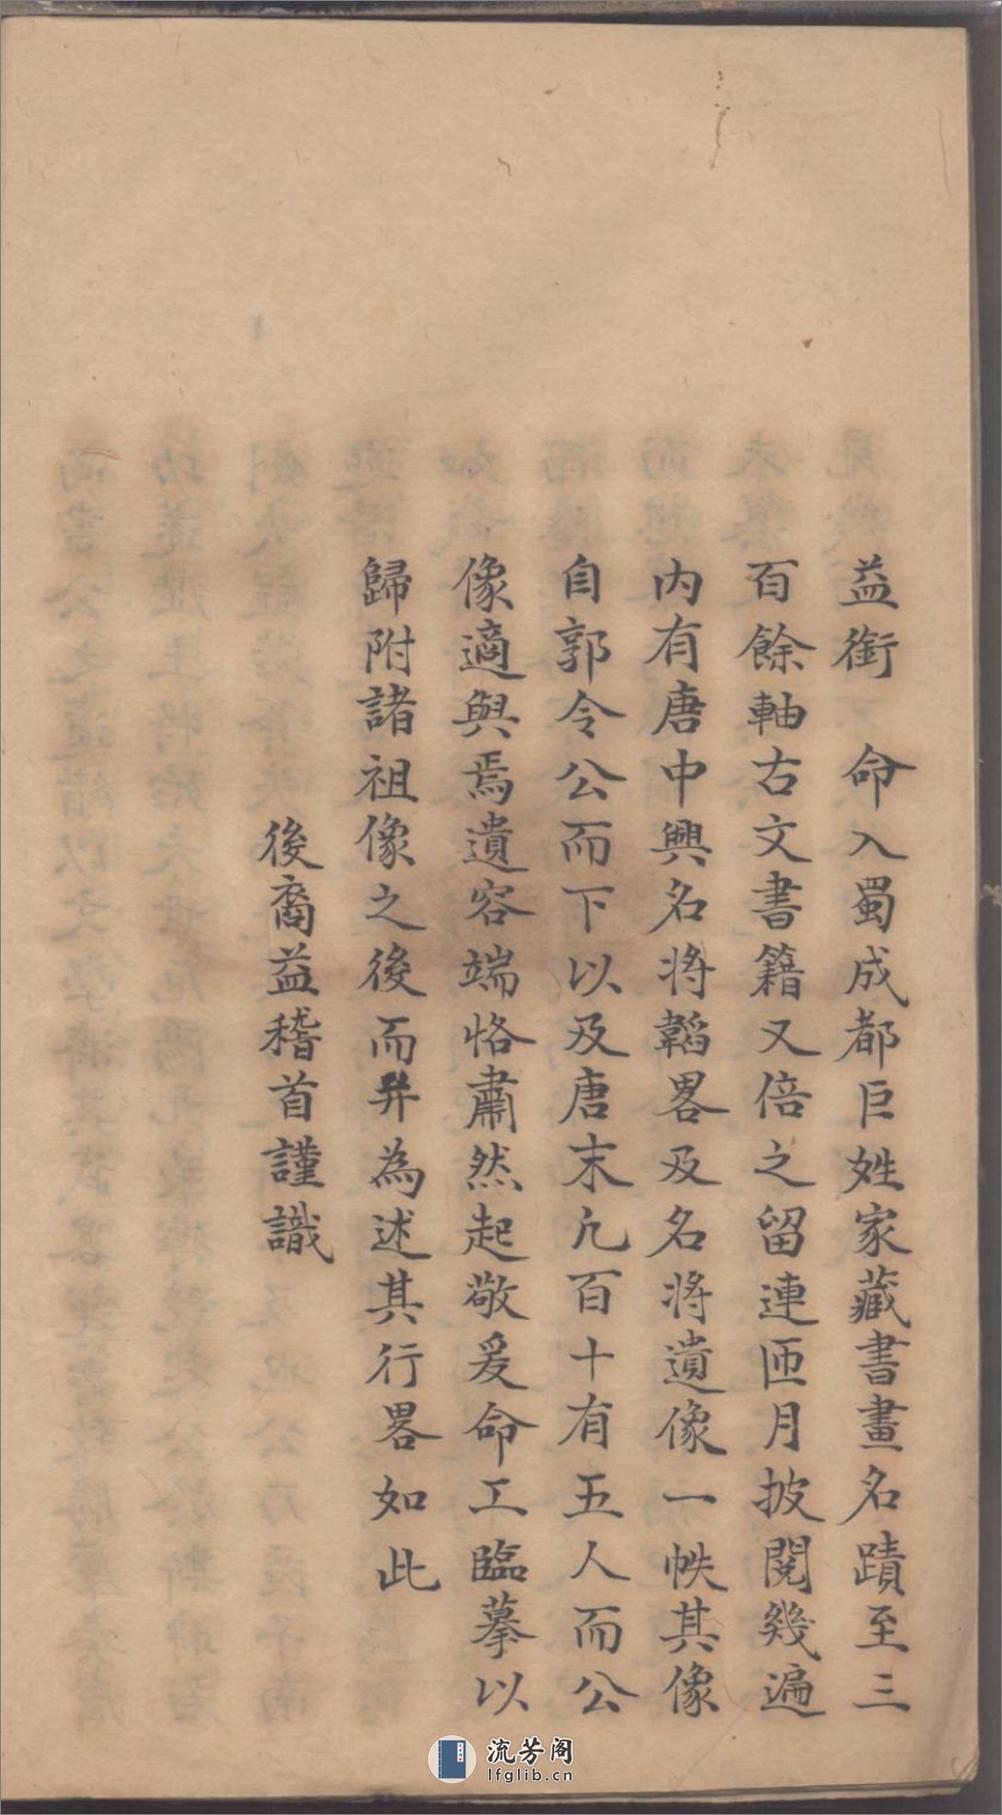 益銜　命入蜀成都巨姓家藏書畫名蹟至三
百餘軸古文書籍又倍之留連匝月披閱幾遍
內有唐中興名將韜畧及名將遺像一帙其像
自郭令公而下以及唐末凢百十有五人而公
像適與焉遺容端恪肅然起敬爰命工臨摹以
歸附諸祖像之後而并為述其行畧如此
後裔益稽首謹識
流芳阁
lfglib.cn